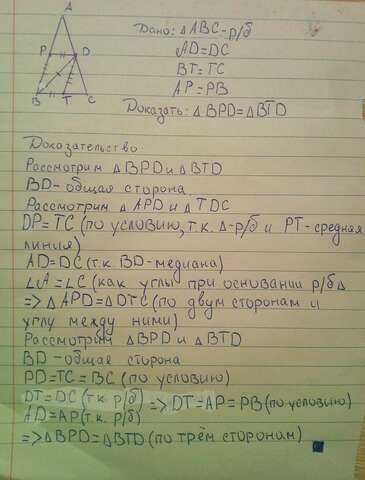 A
P
D
B
T
C
Дано: △ABC - р/б
AD=DC
BT=TC
AP=PB
Доказать: △BPD=△BTD
Доказательство
Рассмотрим △BPD и △BTD
BD - общая сторона
Рассмотрим △APD и △TDC
DP=TC (по условию, т.к. △-р/б и PT-средняя
линия)
AD=DC (т.к. BD-медиана)
∠A=∠C (как углы при основании р/б△
=> △APD=△DTC (по двум сторонам и
углу между ними)
Рассмотрим △BPD и △BTD
BD - общая сторона
PD=TC=BC (по условию)
DT=DC (т.к. р/б) => DT=AP=PB (по условию)
AD=AP (т.к. р/б)
=> △BPD=△BTD (по трём сторонам)